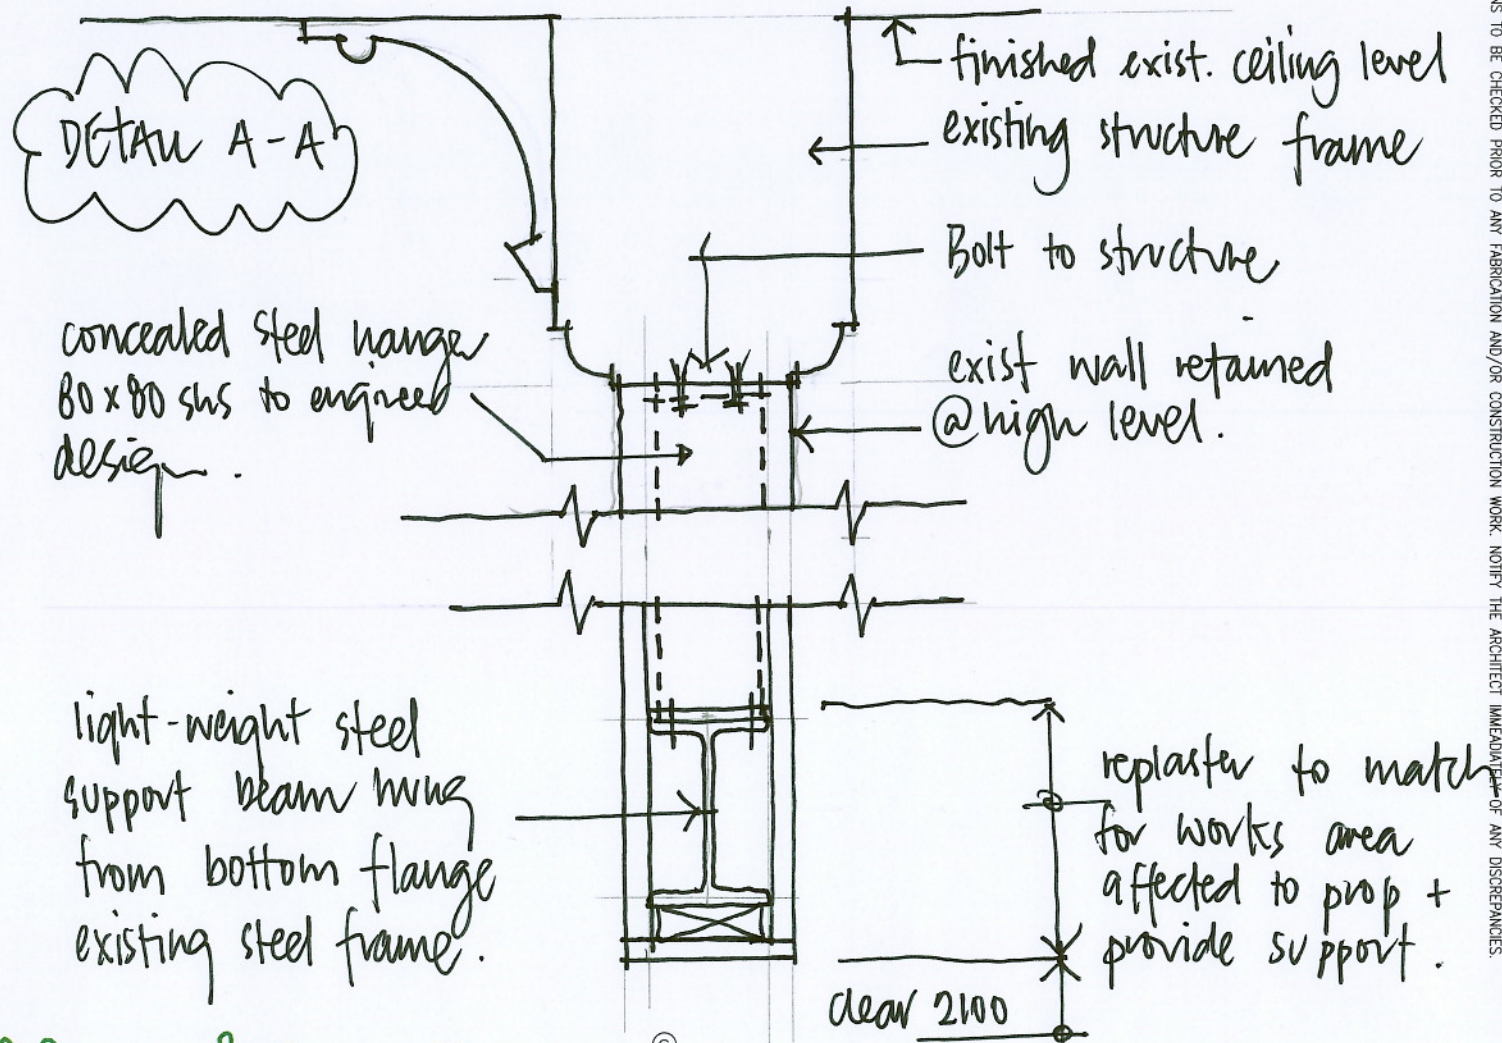 DETAIL A-A
finished exist. ceiling level
existing structure frame
Bolt to structure
exist wall retained
@ high level.
concealed steel hanger
80x80 shs to engineer
design.
light-weight steel
support beam hung
from bottom flange
existing steel frame.
replaster to match
for works area
affected to prop +
provide support.
clear 2100
NS TO BE CHECKED PRIOR TO ANY FABRICATION AND/OR CONSTRUCTION WORK. NOTIFY THE ARCHITECT IMMEADIATELY OF ANY DISCREPANCIES.